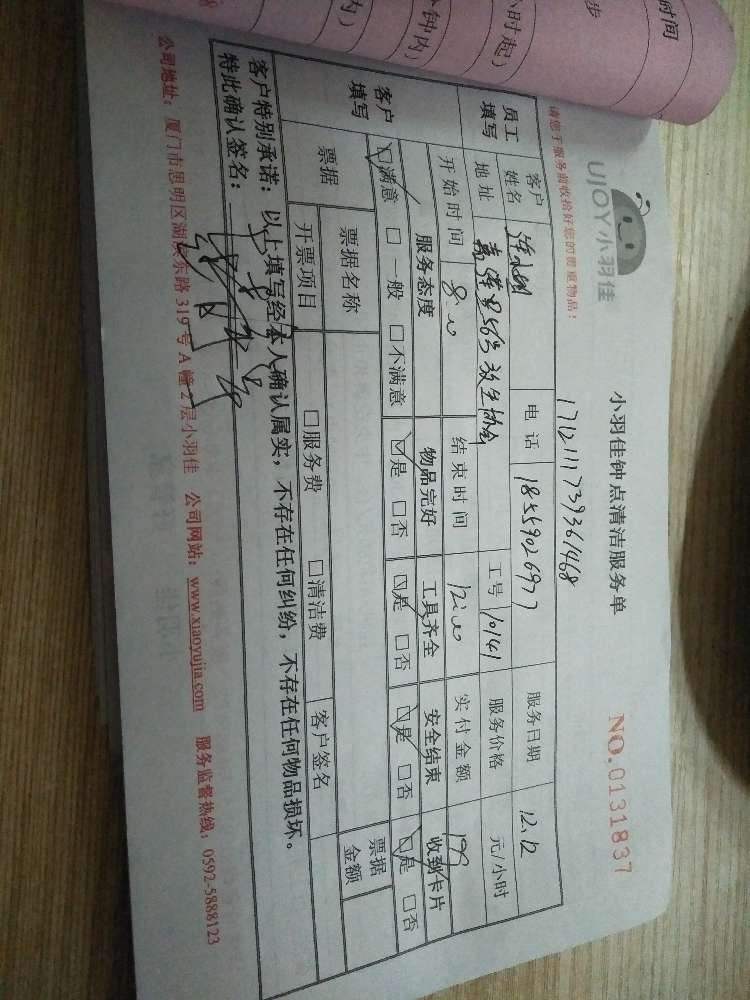 时间
步
小时起)
钟内)
内)
UJOY小羽佳
请您于服务前收拾好您的贵重物品!
小羽佳钟点清洁服务单
NO.0131837
1712111739361468
员工填写
客户姓名
电话 18559026977
服务日期 12.12
地址
工号 10141
服务价格 元/小时
开始时间 8:00
结束时间 12:00
实付金额
客户填写
服务态度 物品完好 工具齐全 安全结束 收到卡片
☑满意 □一般 □不满意 ☑是 □否 ☑是 □否 ☑是 □否 ☑是 □否
票据
票据名称
票据金额
开票项目 □服务费 □清洁费 客户签名
客户特别承诺:以上填写经本人确认属实,不存在任何纠纷,不存在任何物品损坏。
特此确认签名:
公司地址:厦门市思明区湖滨东路 319 号 A 幢 2 层小羽佳 公司网站:www.xiaoyujia.com 服务监督热线:0592-5888123